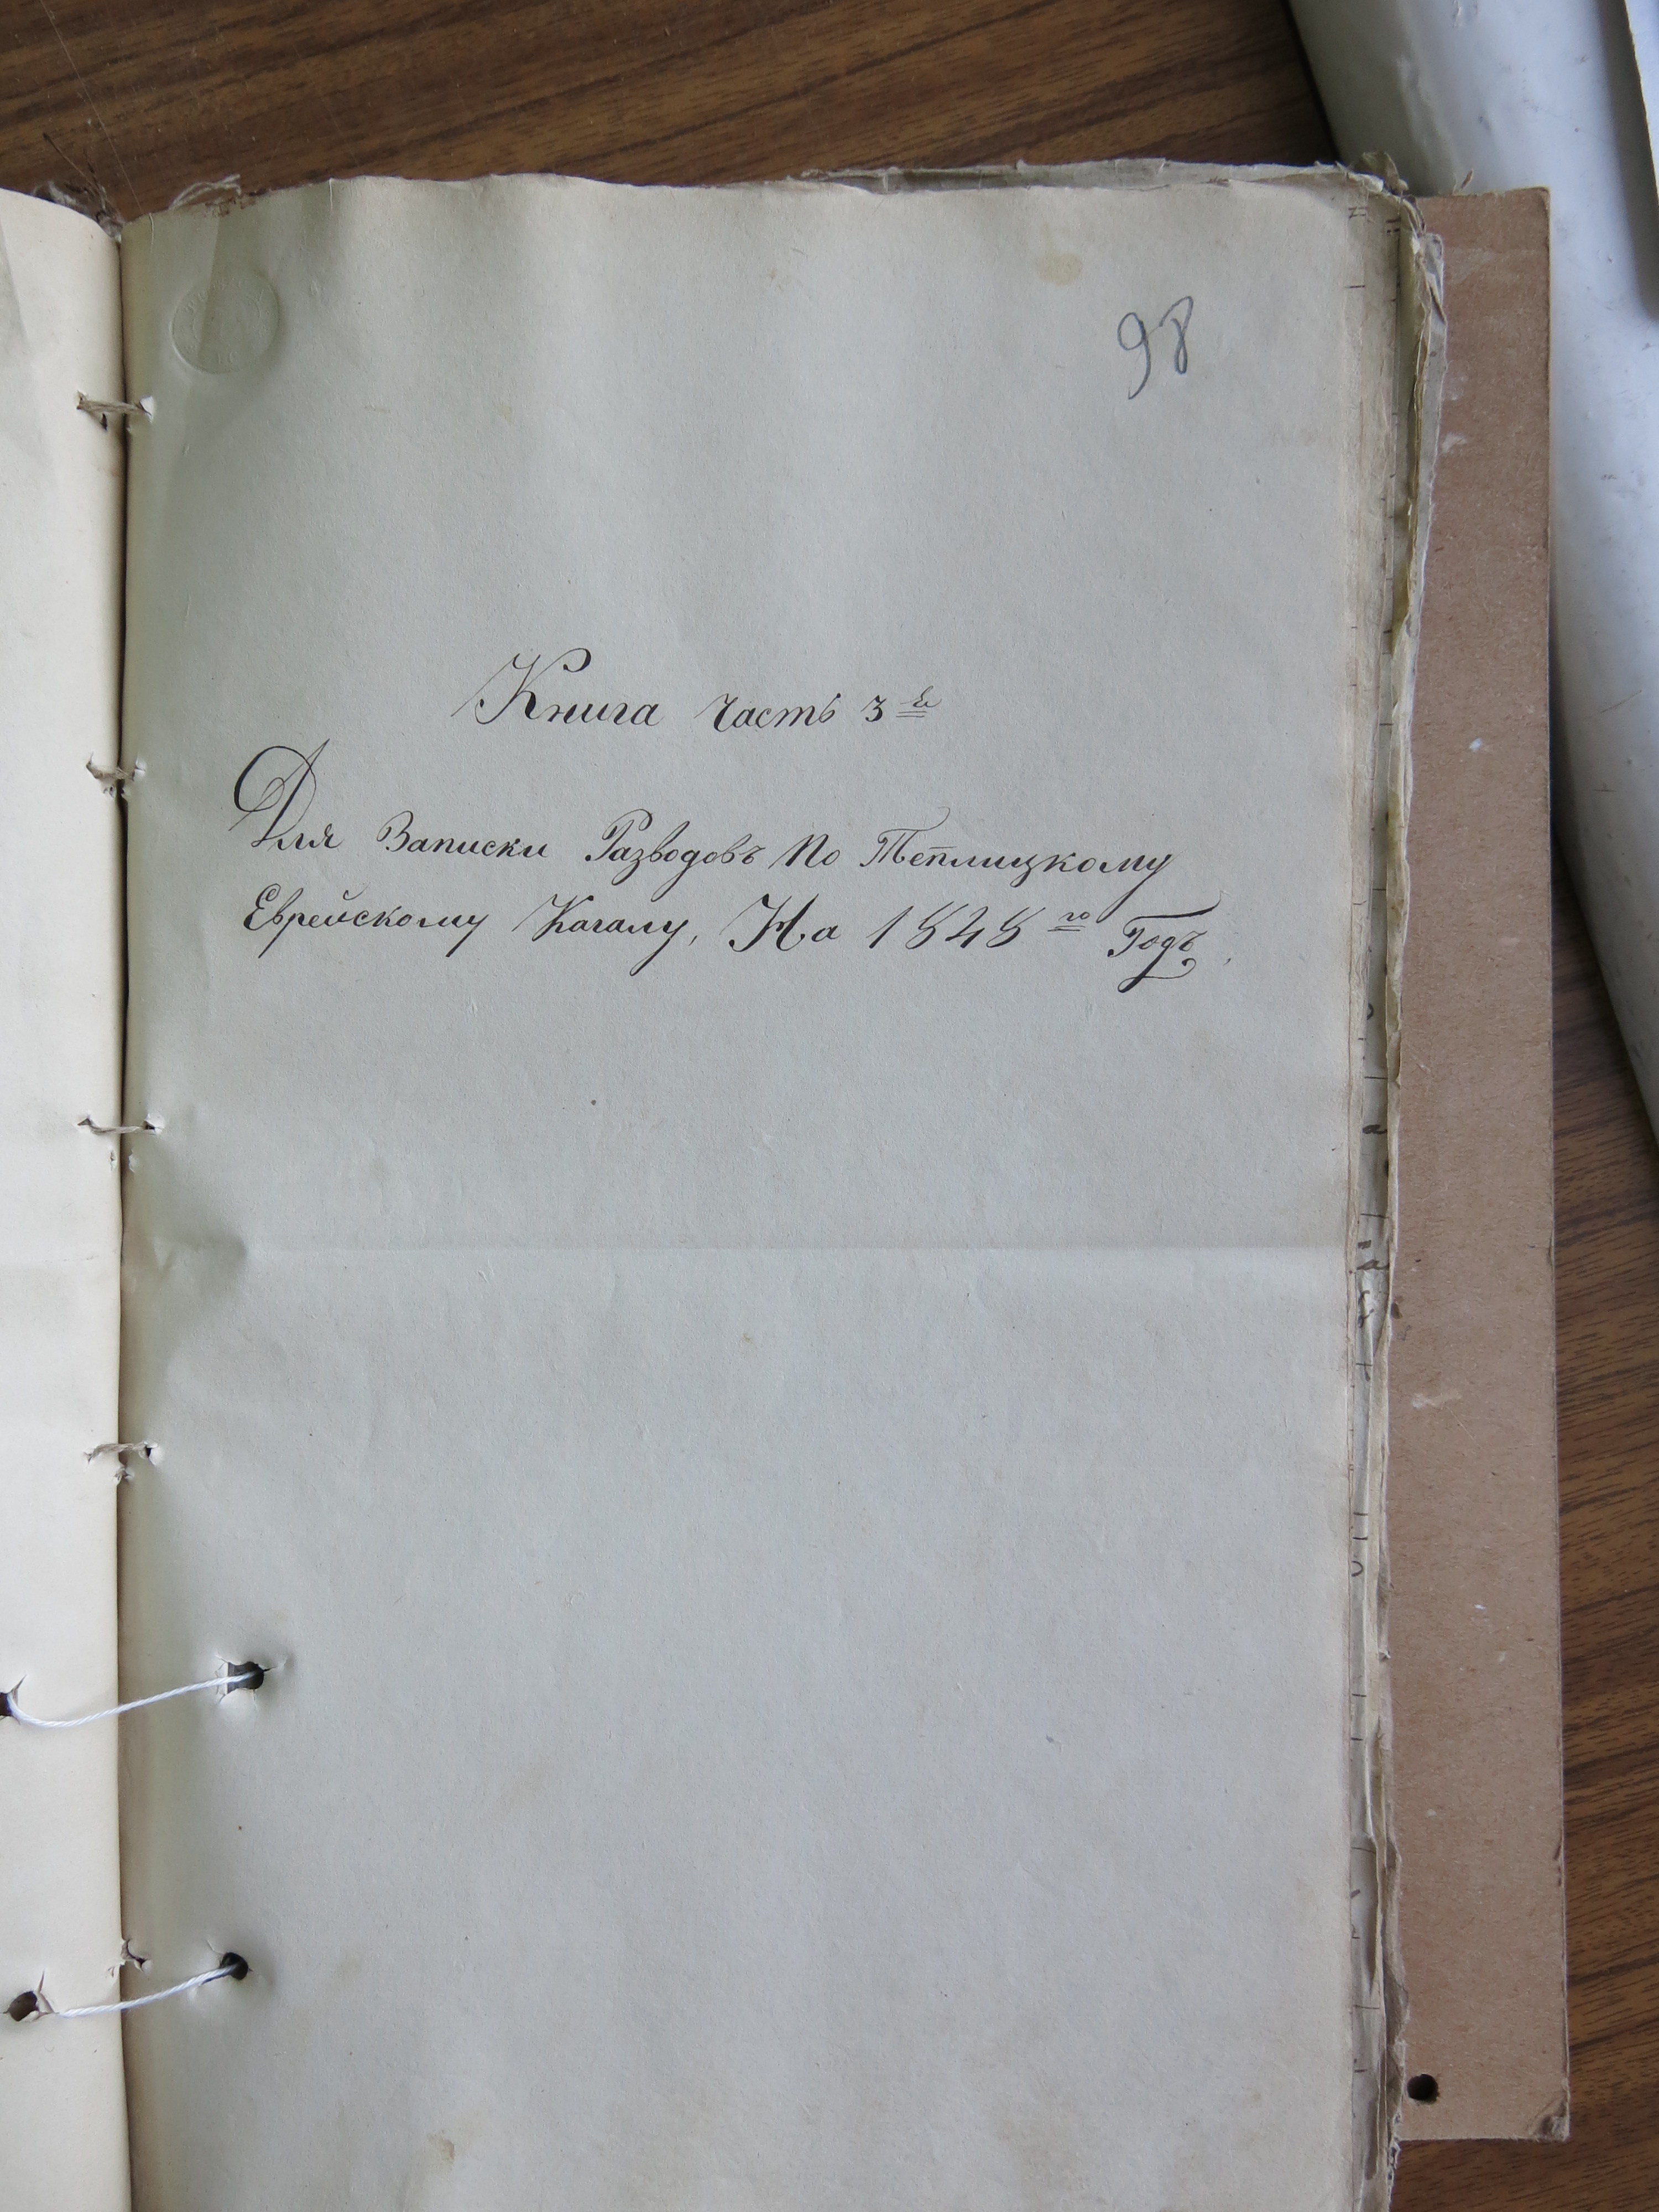 98
Книга часть 3я
Для Записки Разводовъ По Теплицкому
Еврейскому Кагалу, На 1848го Годъ.